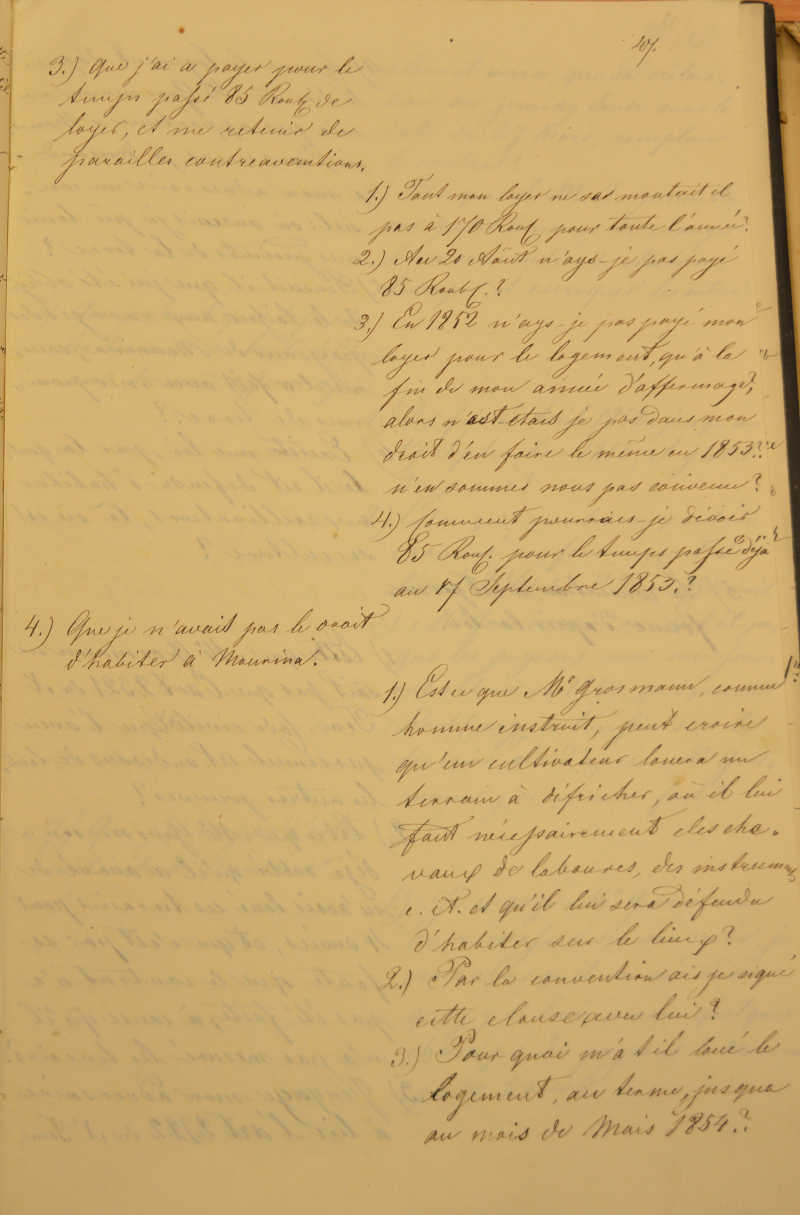 107.
3.) Que j'ai a payer pour le
temps passé 85 Roub. de
loyer, et me retenir de
parailles contreaventions.
1.) Tout mon loyer ne montait il
pas à 170 Roub. pour toute l'année?
2.) Au 20 Août n'ays-je pas payé
85 Roub.?
3.) En 1852 n'ays-je pas payé mon
loyer pour le logement, qu'à la
fin de mon année d'affermage?,
alors n'etais je pas dans mon
droit d'en faire le même en 1853??
n'en sommes nous pas convenu?
4.) Comment pourrais-je devoir
85 Roub. pour le temps passé déjà
au 17 Septembre 1853.?
4.) Que je n'avait pas le droit
d'habiter à Mourina.
1.) Est ce que Mr Grosmann, comme
homme instruit, peut croire
qu'un cultivateur louera un
terrain à défricher, où il lui
faut nécessairement des che-
vaux de laboures, des instrumens
e. ct. et qu'il lui sera défendu
d'habiter sur le lieux?
2.) Par la convention ais je signé
cette clause avec lui?
3.) Pour quoi m'a t il loué le
logement, au terme, jusqua
au mois de Mais 1854.?